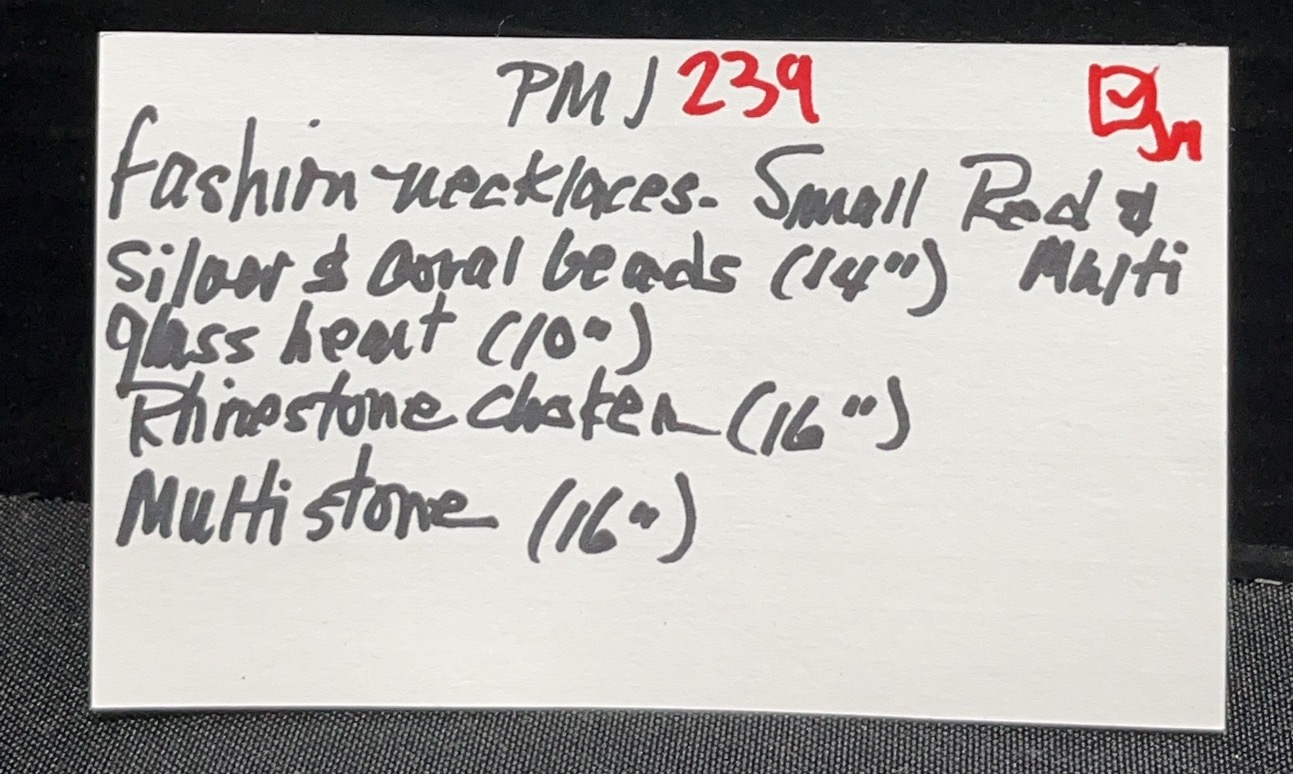 PMJ 239 ☑ JM
fashion necklaces. Small Red &
Silver & Coral beads (14") Multi
glass heart (10")
Rhinestone Choker (16")
Multi stone (16")